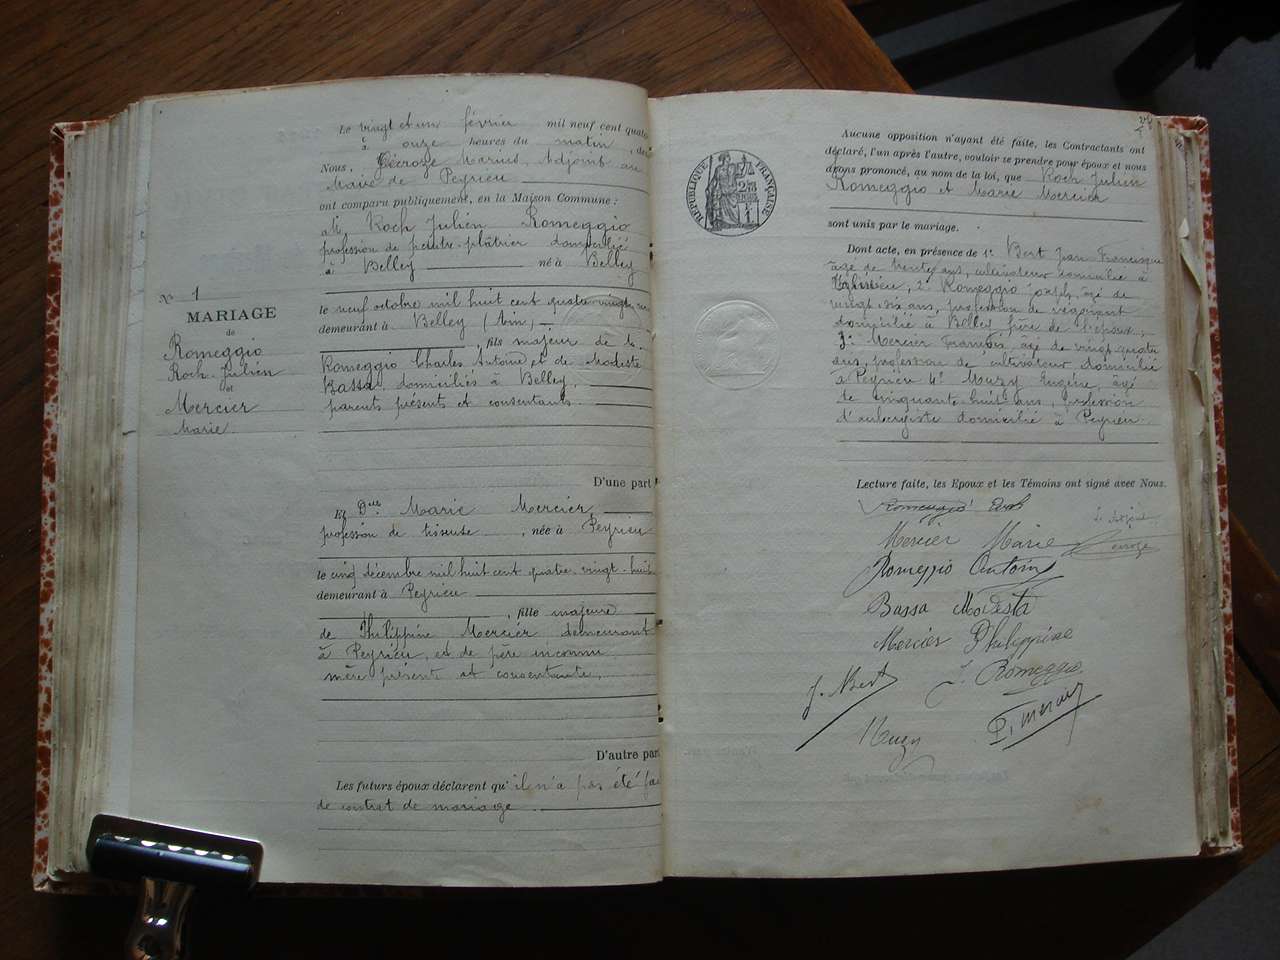 Le vingt et un février mil neuf cent quatorz
à onze heures du matin, de
Nous, Décroze Marius, Adjoint au
Maire de Peyrieu
ont comparu publiquement, en la Maison Commune :
M. Roch Julien Romeggio
profession de peintre-plâtrier domicilié
à Belley né à Belley
le neuf octobre mil huit cent quatre vingt
demeurant à Belley (Ain)
, fils majeur de
Romeggio Charles Antoine et de Modeste
Bassa, domiciliés à Belley,
parents présents et consentants
D'une part
N° 1
MARIAGE
de
Romeggio
Roch Julien
et
Mercier
Marie
Et Dlle Marie Mercier
profession de tisseuse, née à Peyrieu
le cinq décembre mil huit cent quatre-vingt-huit
demeurant à Peyrieu
, fille majeure
de Philippine Mercier demeurant
à Peyrieu, et de père inconnu
mère présente et consentante,
D'autre part
Les futurs époux déclarent qu'il n'a pas été fai
de contrat de mariage
RÉPUBLIQUE FRANÇAISE
Aucune opposition n'ayant été faite, les Contractants ont
déclaré, l'un après l'autre, vouloir se prendre pour époux et nous
avons prononcé, au nom de la loi, que Roch Julien
Romeggio et Marie Mercier
sont unis par le mariage.
Dont acte, en présence de 1° Bert Jean Francisque
âgé de trente ans, cultivateur domicilié à
2° Romeggio Joseph, âgé de
vingt six ans, profession de
domicilié à Belley frère de l'époux,
3° Mercier François, âgé de vingt quatre
ans, profession de cultivateur domicilié
à Peyrieu 4° Muzy Eugène, âgé
de cinquante huit ans, profession
d'aubergiste domicilié à Peyrieu
Lecture faite, les Epoux et les Témoins ont signé avec Nous.
Romeggio Roch
Mercier Marie
Romeggio Antoine
Bassa Modesta
Mercier Philippine
J. Bert J. Romeggio
Muzy